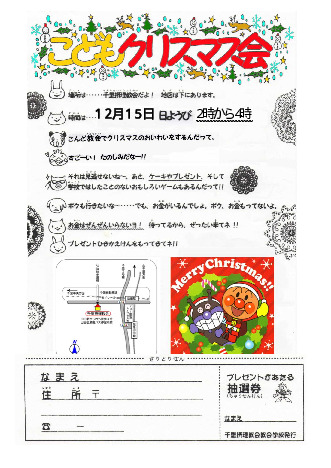 こどもクリスマス会
場所は……千里摂理教会だよ！ 地図は下にあります。
時間は…12月15日 日ようび 2時から4時
こんど教会でクリスマスのおいわいをするんだって。
すごーい！ たのしみだなー!!
それは見逃せないね～。あと、ケーキやプレゼント、そして
学校ではしたことのないおもしろいゲームもあるんだって!!
ボクも行きたいな～‥‥でも、お金がいるんでしょ。ボク、お金もってないよ。
お金はぜんぜんいらないヨ！ 待ってるから、ぜったい来てネ!!
プレゼントひきかえけんをもってきてネ!!
MerryChristmas!!
きりとりせん
なまえ
住所 〒
☎ ー
プレゼントがあたる
抽選券
なまえ
千里摂理教会教会学校発行